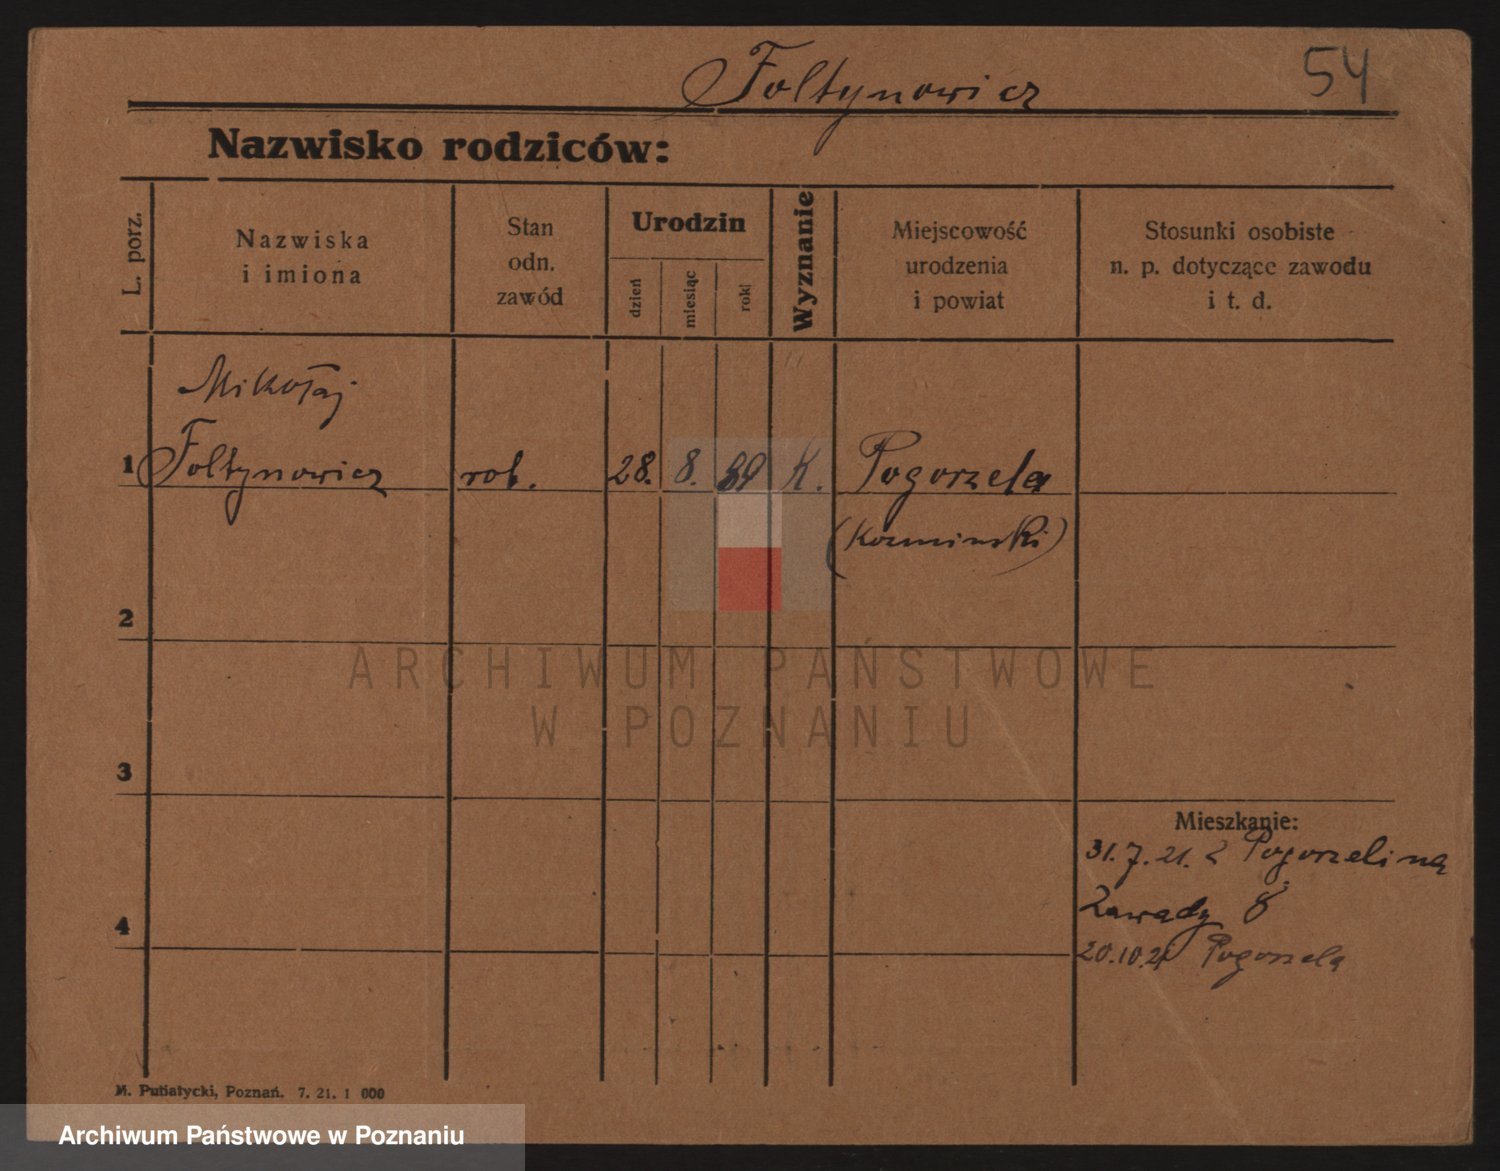 Foltynowicz
54
Nazwisko rodziców:
L. porz.
Nazwiska
i imiona
Stan
odn.
zawód
Urodzin
dzień
miesiąc
rok
Wyznanie
Miejscowość
urodzenia
i powiat
Stosunki osobiste
n. p. dotyczące zawodu
i t. d.
Mikołaj
1 Foltynowicz rob. 28. 8. K. Pogorzela
(Kozminski)
2
ARCHIWUM PAŃSTWOWE
W POZNANIU
3
Mieszkanie:
31.7.21. z Pogorzeli na
Zawady 8
4
20.10.21 Pogorzela
M. Putiatycki, Poznań. 7. 21. 1 000
Archiwum Państwowe w Poznaniu